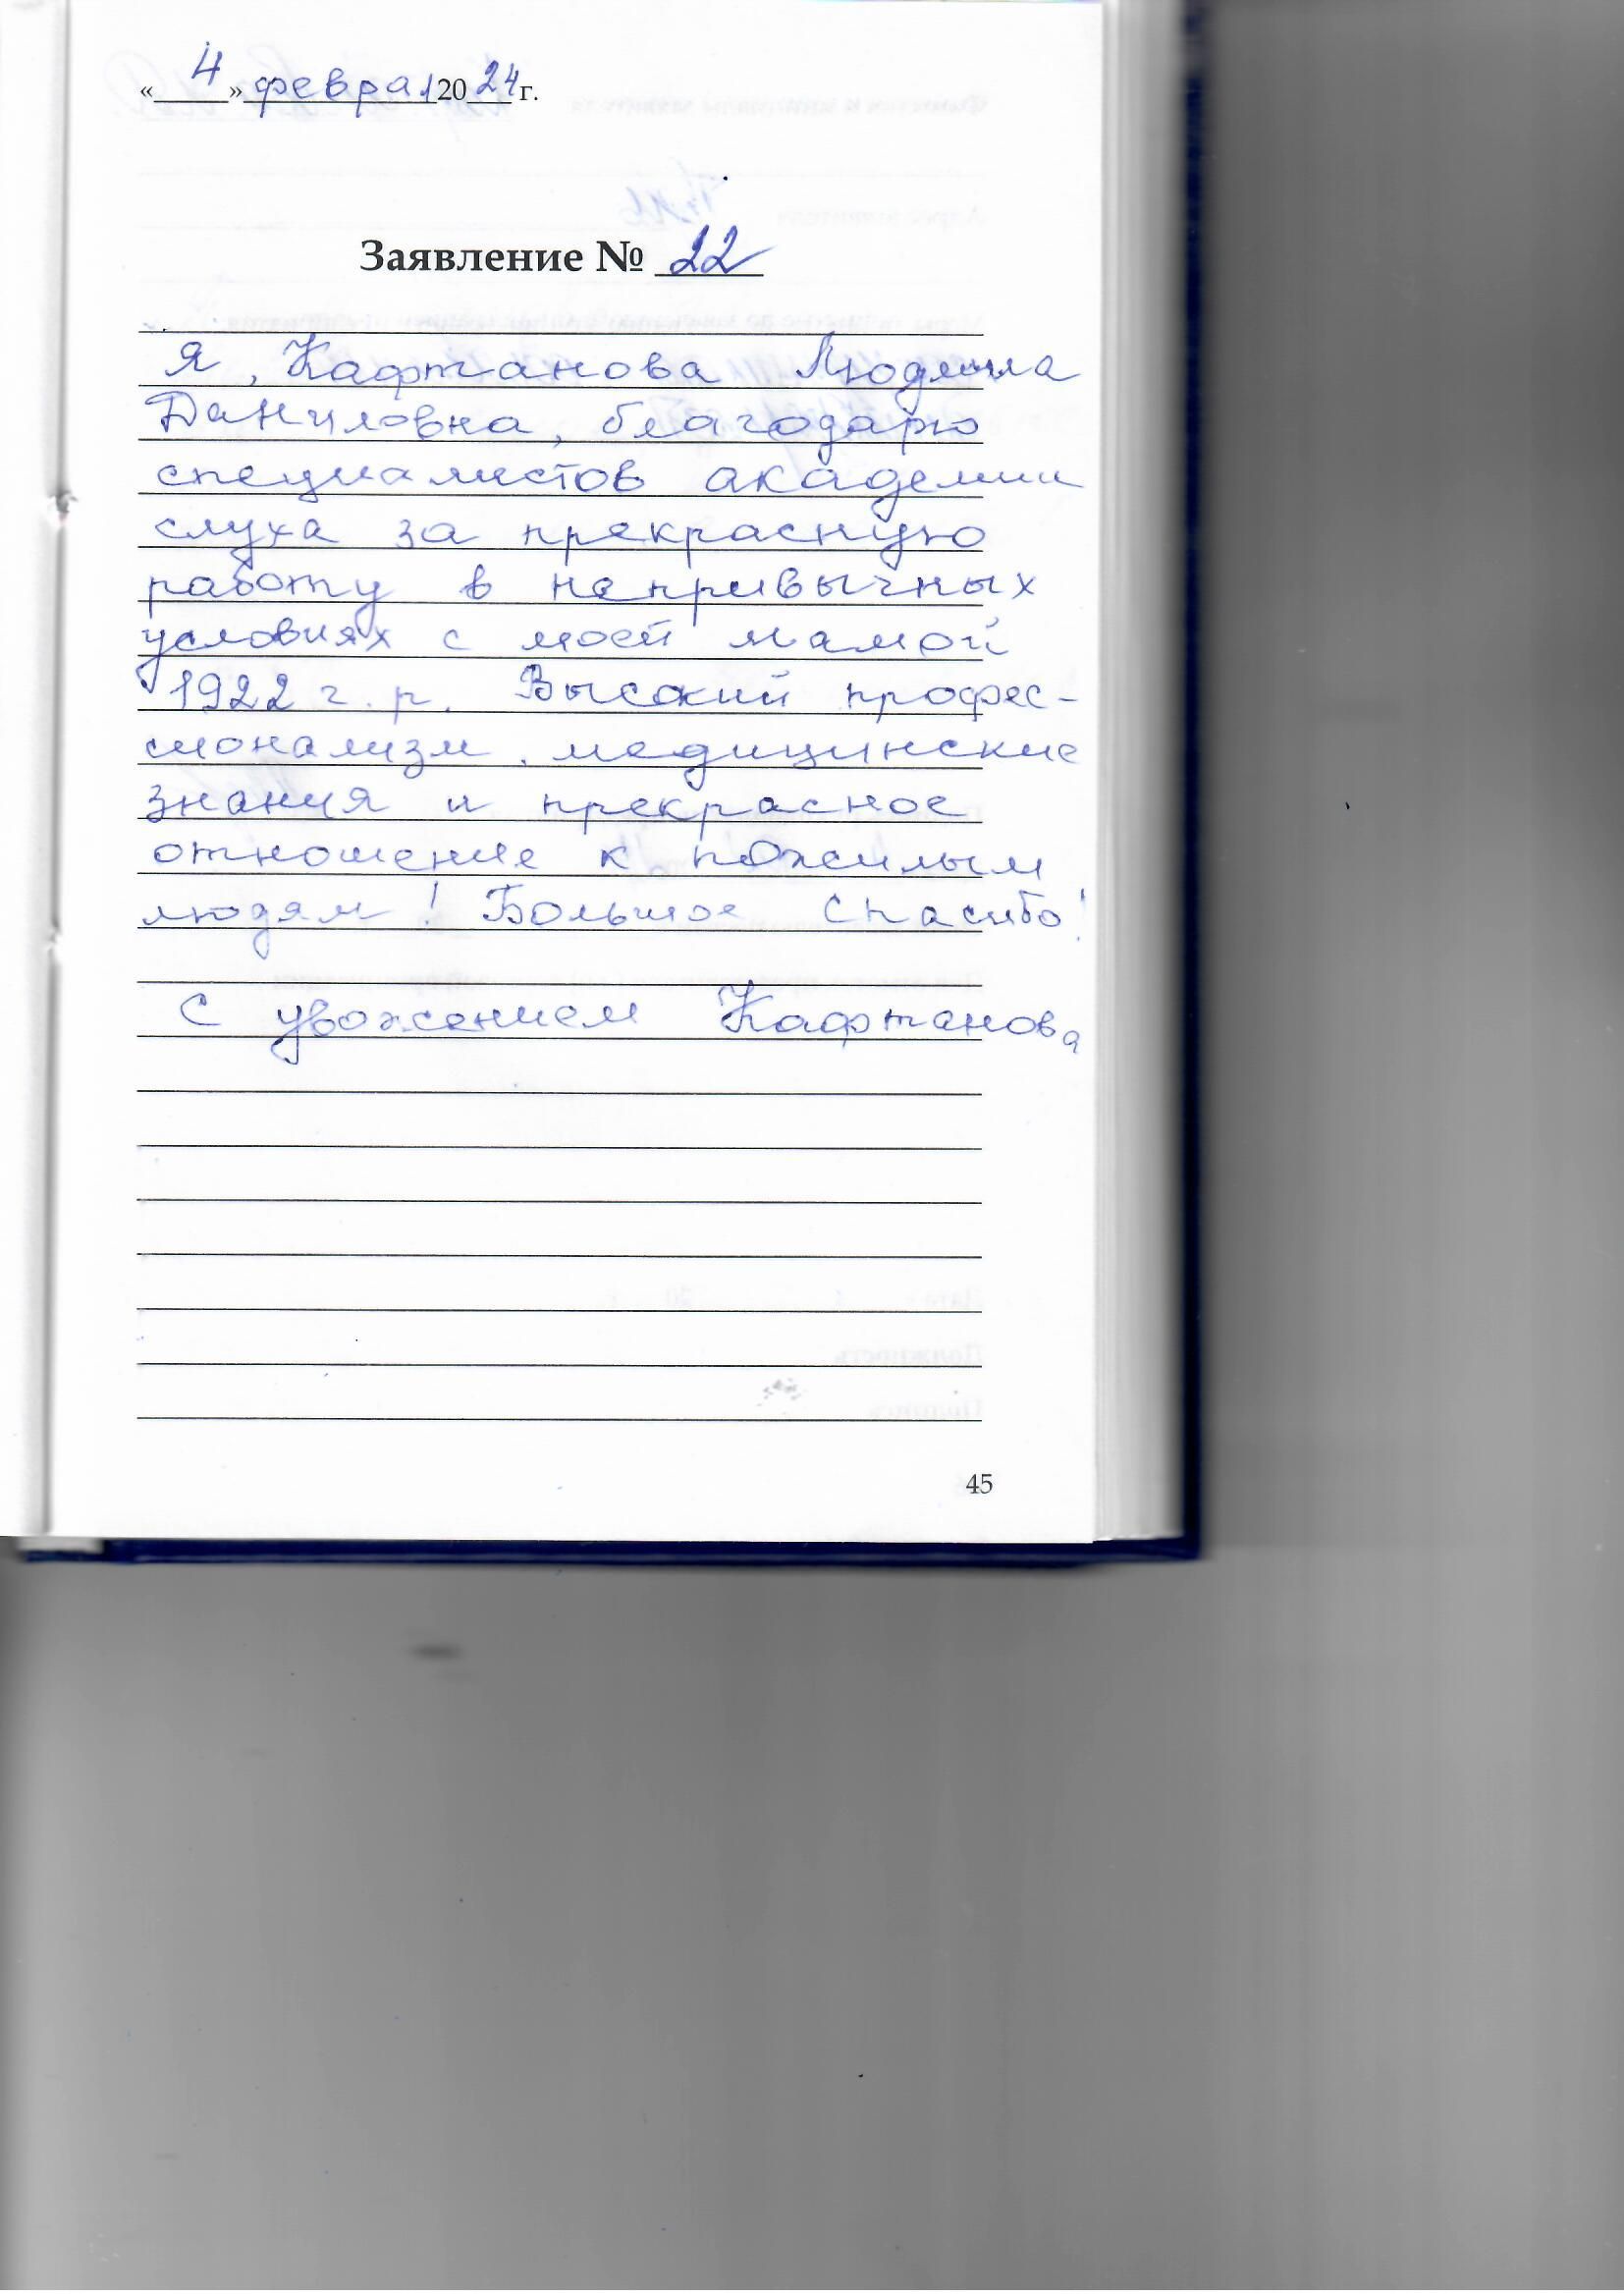 « 4 » феврал 20 24 г.
Заявление № 22
Я, Кафтанова Людмила
Даниловна, благодарю
специалистов академии
слуха за прекрасную
работу в непривычных
условиях с моей мамой
1922 г.р. Высокий профес-
сионализм, медицинские
знания и прекрасное
отношение к пожилым
людям! Большое спасибо!
С уважением Кафтанова
45